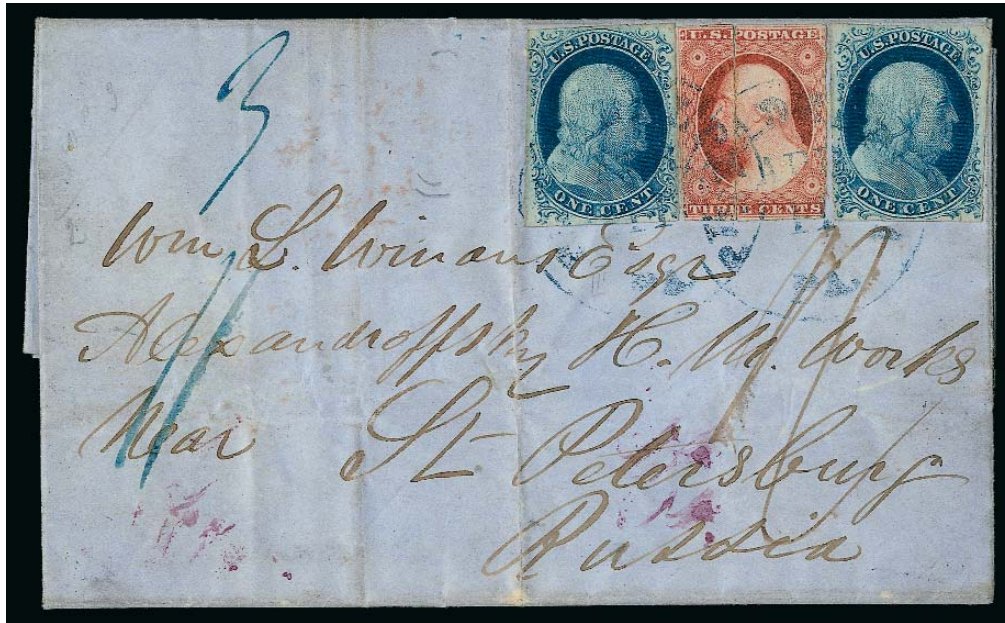 U.S. POSTAGE
ONE CENT
U.S. POSTAGE
THREE CENTS
U.S. POSTAGE
ONE CENT
3
Wm L. Winans Esqr
Alexandroffsky H. M. Works
Near St Petersburg
Russia